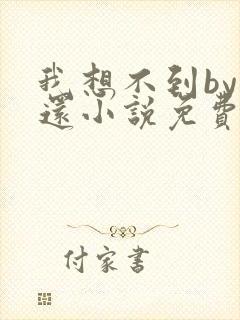 我想不到by
還小說免費
付家書